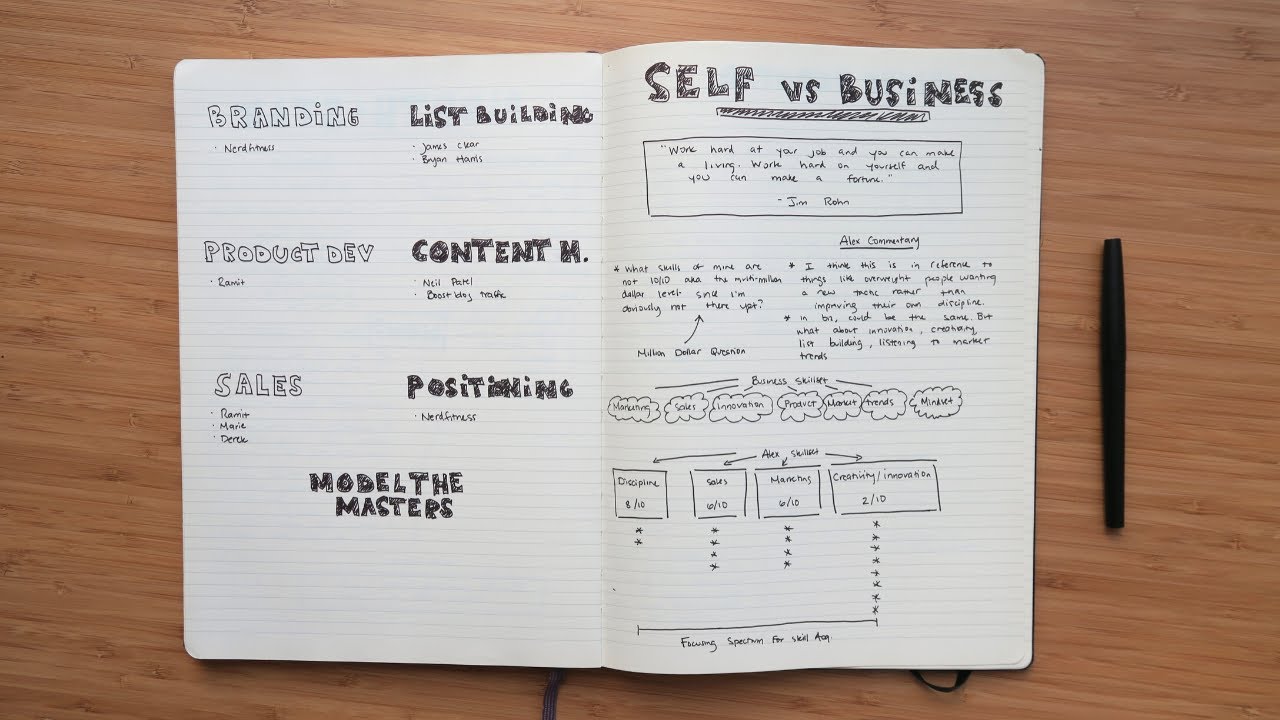 BRANDING
· Nerdfitness
LIST BUILDING
· James Clear
· Bryan Harris
PRODUCT DEV
· Ramit
CONTENT M.
· Neil Patel
· Boost blog traffic
SALES
· Ramit
· Marie
· Derek
POSITIONING
· Nerdfitness
MODEL THE
MASTERS
SELF vs BUSINESS
"Work hard at your job and you can make
a living. Work hard on yourself and
you can make a fortune."
- Jim Rohn
Alex Commentary
* What skills of mine are
not 10/10 aka the multi-million
dollar level since I'm
obviously not there yet?
Million Dollar Question
* I think this is in reference to
things like overweight people wanting
a new tactic rather than
improving their own discipline.
* in biz, could be the same. But
what about innovation, creativity,
list building, listening to market
trends
Business Skillset
Marketing Sales innovation Product Market trends Mindset
Alex Skillset
Discipline
8/10
Sales
6/10
Marketing
6/10
Creativity/innovation
2/10
* * * *
* * * *
* * *
* * *
*
*
*
*
Focusing Spectrum For Skill Acq.